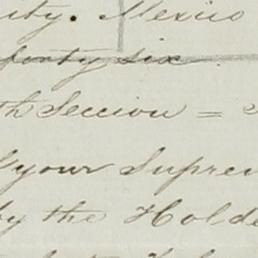 ity. Mexico
forty six
th Section =
your Suprem
by the Holde